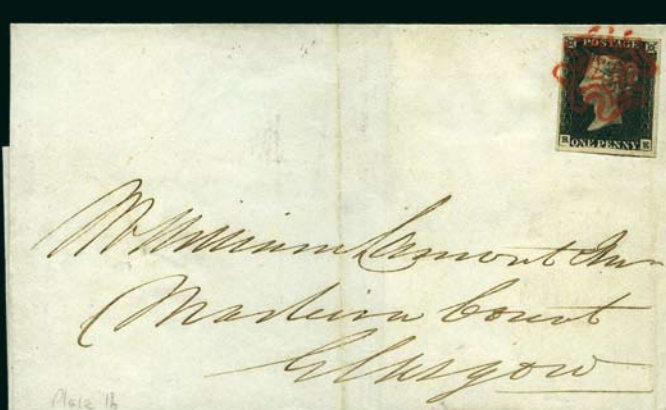 POSTAGE
R E
ONE PENNY
Mr William Lamont Junr
Madeira Court
Glasgow
Plate 1b